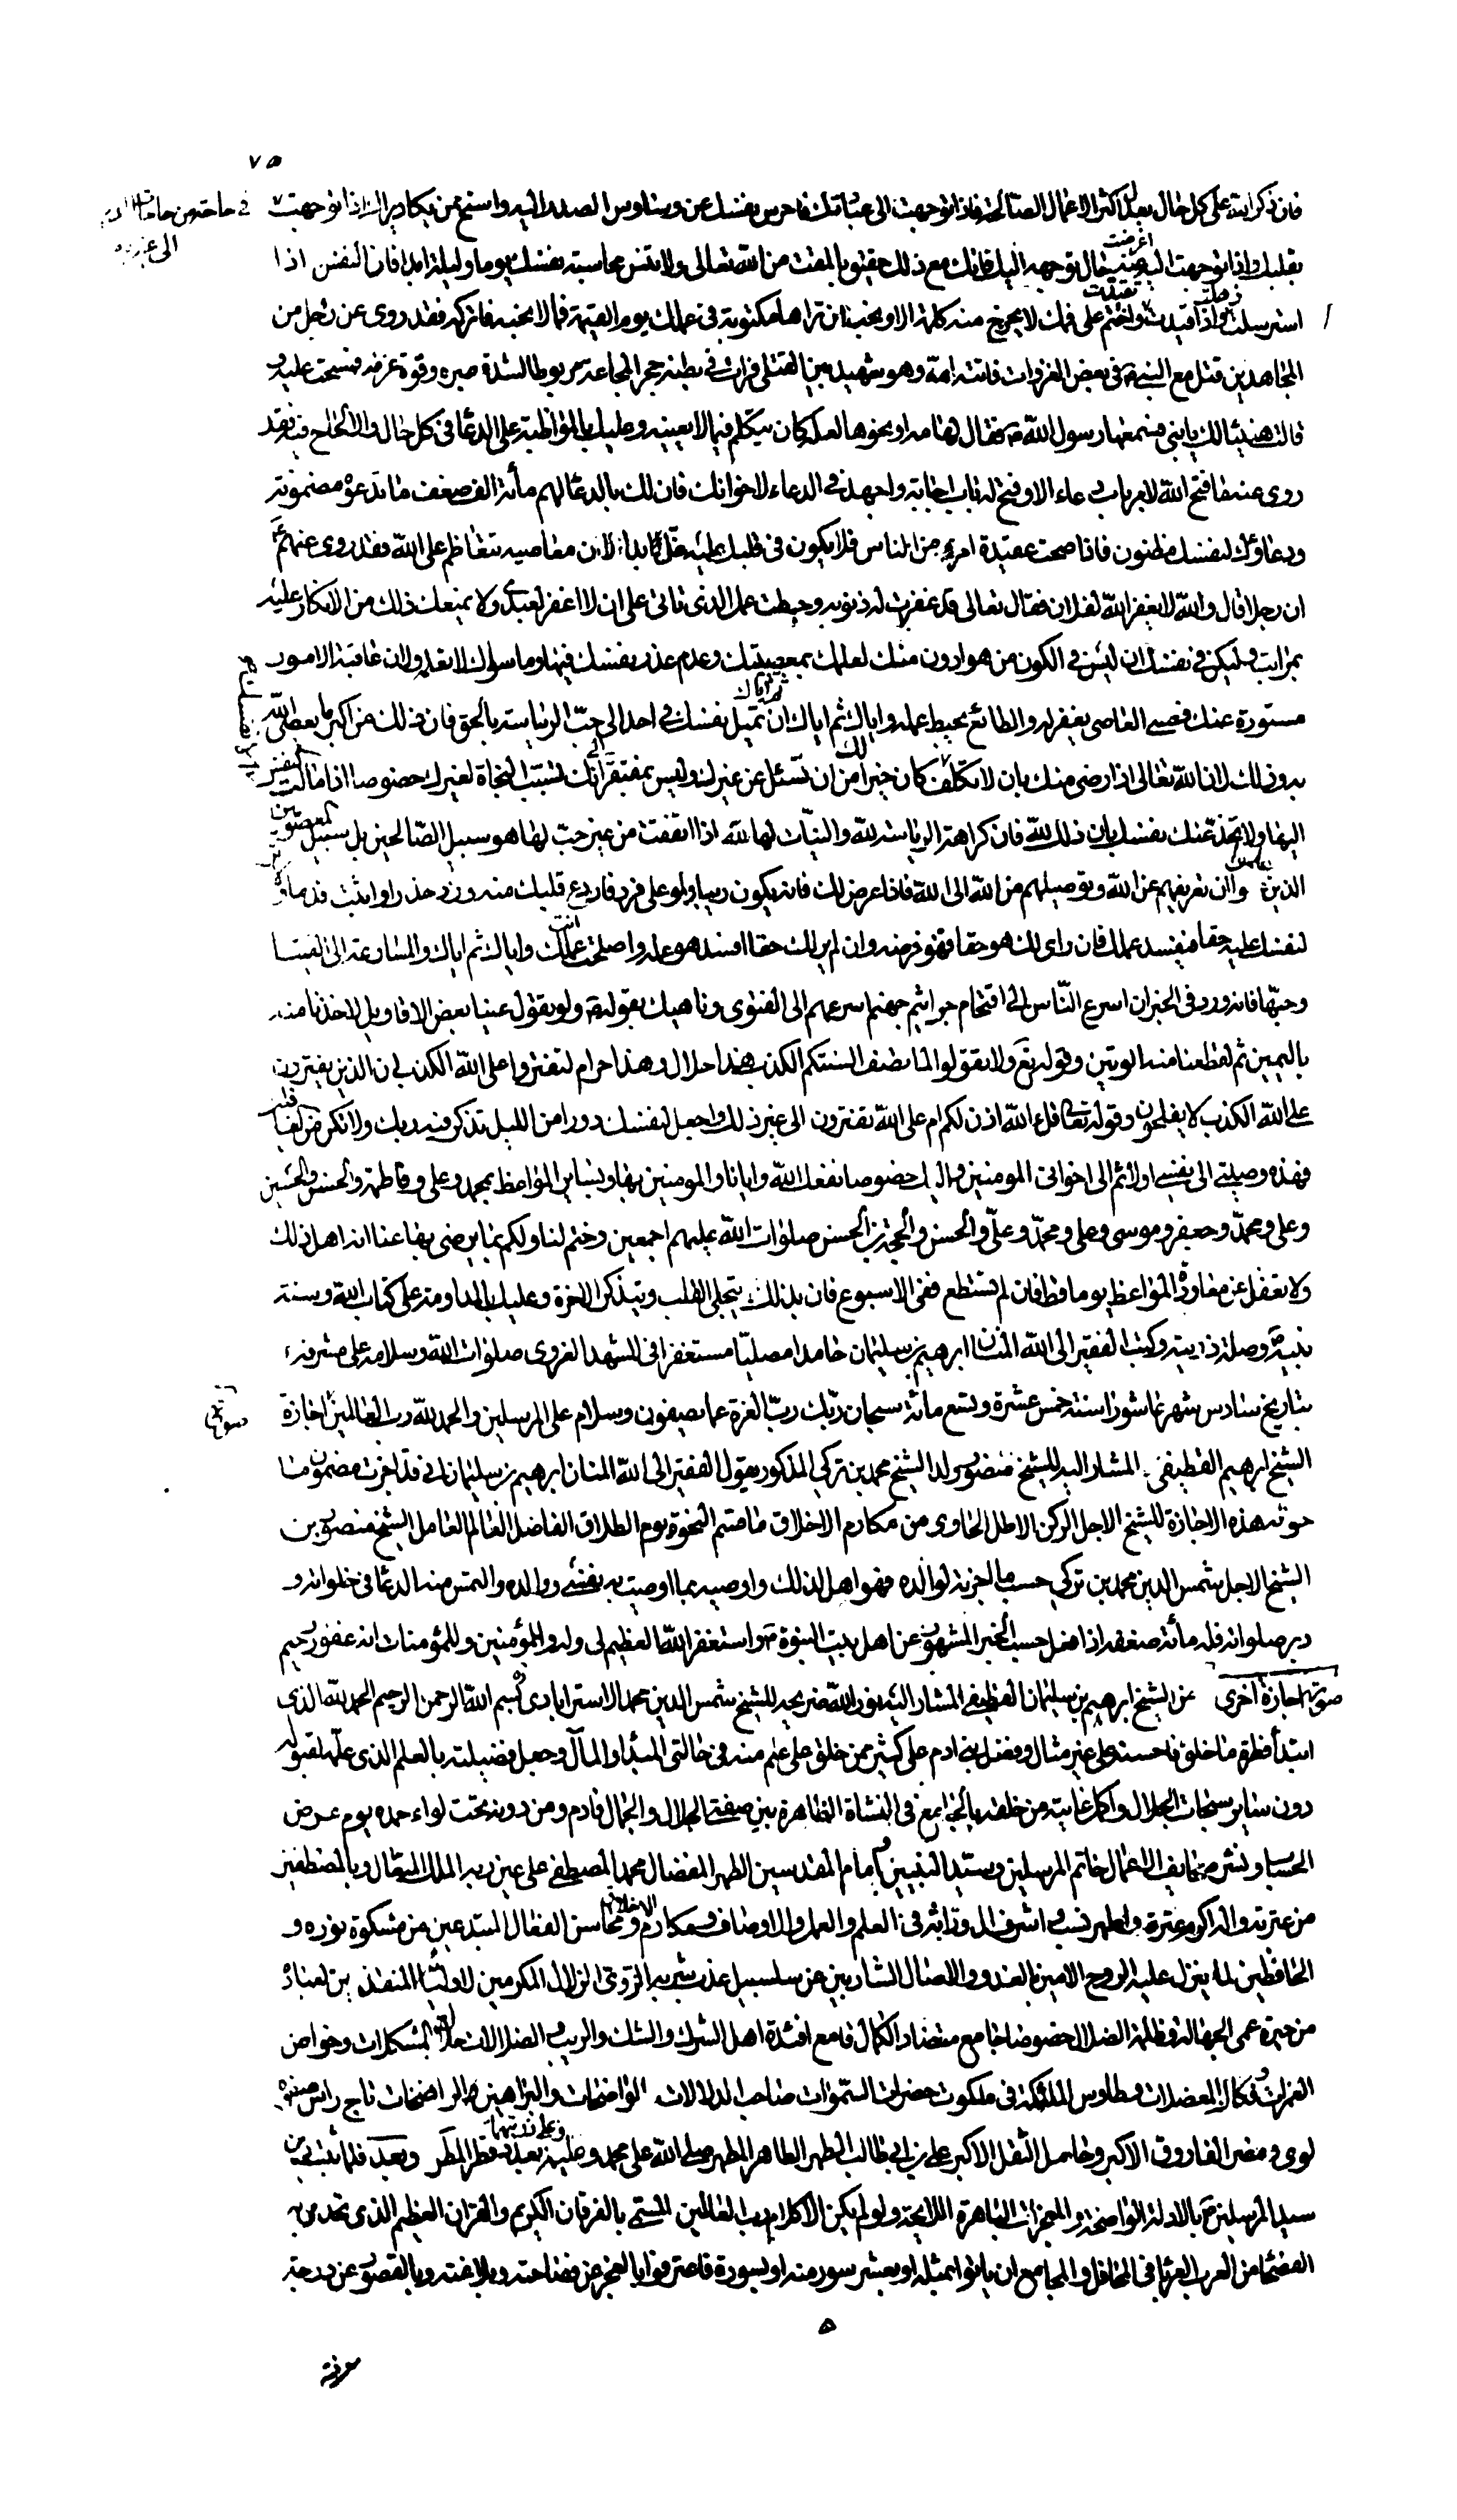 ٧٥
فان ذكر الله على كل حال يعدل اكثر الاعمال الصالحة فاذا توجهت الى عباتك فاحرس نفسك عن وساوس الصدد اليه واستح ممن يكاد يراك اذا توجهت
في حاجة من حاجات
الى غيره
بقلبك واذا توجهت اليه عنه حال توجهه اليك فانك مع ذلك حقيق بالمقت من الله تعالى ولا تنس محاسبة نفسك يوما وليلة ابدا فان النفس اذا
اعرضت
استرسلت واذا قيدت واختم على فمك لا يخرج منه كلمة الا وتحب ان تراها مكتوبة في عملك يوم القيمة فما لا تحبه فاتركه فقد روى عن رجل من
تقيدت
المجاهدين قتل مع النبي ص في بعض الغزوات فاتته امه وهو شهيد بين القتلى فرات في بطنه حجر المجاعة مربوطا لشدة صبره وقوة عزمه فمسحت عليه و
قالت هنيئا لك يا بني فسمعها رسول الله ص فقال لها مه او نحوها لعله كان يتكلم فيما لا يعنيه وعليك بالمواظبة على الدعاء في كل حال والالحاح فيه فقد
روى عنه ما فتح الله لامرء باب دعاء الا وفتح له باب اجابة واجهد في الدعاء لاخوانك فان لك بالدعاء لهم مأة الف ضعف ما تدعوه مضمونة
ودعاؤك لنفسك مظنون فاذا صحت عقيدة امرء من الناس فلا يكون في قلبك عليه غل ابدا لان معاصيه تتعاظم على الله فقد روى عنهم
ان رجلا قال والله لا يغفر الله لفلان فقال تعالى قد غفرت له ذنوبه وحبطت عمل الذي تالى على ان لا اغفر لعبدي ولا يمنعك ذلك من الانكار عليه
بمراتبه وليكن في نفسك ان ليس في الكون من هو ادون منك لعلمك بمعصيتك وعدم عذر نفسك فيها وما سواك لا تعلم ولان عاقبة الامور
مستورة عنك فعسى العاصي يغفر له والطائع يحبط عمله واياك ثم اياك ان تميل نفسك في احد الى حب الرياسة بالحق فان ذلك من اكبر ما يعصى الله
ثم اياك
به وذلك لان الله تعالى اذا رضى منك بان لا تكلف كان خيرا من ان تسئل عن غيرك وليس بمفتقر انك لتسبب النجاة لغيرك خصوصا اذا مالت النفس
لك
اليها ولا تخدعنك نفسك بان ذلك لله فان كراهة الرياسة لله والنيات لها لله اذا اتفقت من غير حب لها هو سبيل الصالحين بل سبيل المعصومين
الذين وان تعريفهم عن الله وتوصيلهم من الله الى الله فاذا عرض لك فانه يكون رعيا ولو على فرد فاردع قلبك منه وزد حذرا واثبت قدما و
لنفسك عليه حقا فيفسد عملك فان راى لك هو حقا فهو فرضه وان لم ير لك حقا افسد هو عمله واصلحت عملك واياك ثم اياك والمسارعة الى الفتيا
انت
وحبها فانه ورد في الخبر ان اسرع الناس الى اقتحام جراثيم جهنم اسرعهم الى الفتوى وناهيك بقوله تع ولو تقول علينا بعض الاقاويل لاخذنا منه
باليمين ثم لقطعنا منه الوتين وقوله تع ولا تقولوا لما تصف السنتكم الكذب هذا حلال وهذا حرام لتفتروا على الله الكذب ان الذين يفترون
على الله الكذب لا يفلحون وقوله تعالى قل ءالله اذن لكم ام على الله تفترون الى غير ذلك واجعل لنفسك دورا من الليل تذكر فيه ربك ولا تكن من الغا
فلين
فهذه وصيتي الى نفسي اولا ثم الى اخواني المؤمنين واليك خصوصا نفعك الله وايانا والمومنين بها وبساير المواعظ بمحمد وعلي وفاطمة والحسن والحسين
وعلي ومحمد وجعفر وموسى وعلي ومحمد وعلي والحسن والحجة بن الحسن صلوات الله عليهم اجمعين وختم لنا ولكم بما يرضى بها عنا انه اهل ذلك
ولا تغفل عن معاودة المواعظ يوما قط فان لم تستطع ففي الاسبوع فان بذلك يتجلى القلب ويتذكر الاخرة وعليك بالمداومة على كتاب الله وسنة
نبيه ص وصلة ذريته وكتب الفقير الى الله المنان ابراهيم بن سليمان حامدا مصليا مستغفرا في المشهد الغروى صلوات الله وسلامه على مشرفه
بتاريخ سادس شهر عاشورا سنة خمس عشرة وتسع مائة سبحان ربك رب العزة عما يصفون وسلام على المرسلين والحمد لله رب العالمين اجازة
صورة
الشيخ ابراهيم القطيفي المشار اليه للشيخ منصور ولد الشيخ محمد بن تركي المذكور يقول الفقير الى الله المنان ابراهيم بن سليمان اني قد اجزت مضمون ما
حوته هذه الاجازة للشيخ الاجل الركن الاطل الحاوى من مكارم الاخلاق ما صتم النخوة يوم الطلاق الفاضل العالم العامل الشيخ منصور بن
الشيخ الاجل شمس الدين محمد بن تركي حسب ما اجزته لوالده فهو اهل لذلك واوصيه بما اوصيت به نفسي ووالده والتمس منه الدعا في خلواته و
دبر صلواته فله مأئة ضعفه اذا فعل حسب الخبر المشهور عن اهل بيت النبوة ص واستغفر الله العظيم لي وله وللمؤمنين وللمؤمنات انه غفور رحيم
صورة اجازة اخرى من الشيخ ابراهيم بن سليمان القطيفي المشار اليه نور الله ضريحه للشيخ شمس الدين محمد الاسترابادى بسم الله الرحمن الرحيم الحمد لله الذي
ابتدأ فطرة ما خلق فاحسنه على غير مثال وفضل بني ادم على كثير ممن خلق على علم منه في حالتي المبدا والمآل وجعل فضيلته بالعلم الذي علمه لقبوله
دون ساير سبحات الجلال واكمل غايته من خلقه بالجوامع في النشاة الظاهرة بين صفتي الجلال والجمال فادم ومن دونه تحت لواء حمده يوم عرض
الحساب ونشر صحايف الاعمال خاتم المرسلين وسيد النبيين وامام المقدسين الطهر المفضال محمد المصطفى على عين ربه الملك المتعال وبالمصطفين
من عترته واله اكرم عترة واطهر نسب واشرف ال وراثه في العلم والعمل والاوصاف ومكارم ومحاسن الفعال المبتدعين من مشكوة نوره و
الاخلاق
الحافظين لما ينزل عليه الروح الامين بالغدو والاصال الشاربين من سلسبيل عذب شربه الروى الزلال المكرمين لاوليائه المنقذين لعباده
من حيرة عمى الجهالة وظلمة الضلال خصوصا جامع متضاد الكمال قامع افئدة اهل الشرك والشك والريب والضلالات حلال المشكلات وخواض
الغمرات وفكاك المعضلات وطاوس الملائكة في ملكوت حضرات السموات صاحب الدلالات الواضحات والبراهين الراضخات تاج راس
لوى ومضر الفاروق الاكبر وحامل الثقل الاكبر علي بن ابي طالب الطهر الطاهر المطهر صلى الله على محمد وعليه بعدد قطر المطر وبعد فلما ثبت نبوة
وعلى ذريتهما
سيد المرسلين ص بالادلة الواضحة والمعجزات الباهرة اللايحة ولو لم يكن الا كلام رب العالمين المسمى بالفرقان الكريم والقران العظيم الذي تحدى به
الفصحا من العرب العربا في المحافل والمجامع ان ياتوا بمثله او بعشر سور منه او بسورة فاعترفوا بالعجز عن فصاحته وبلاغته وبالقصور عن درجة
معرفته